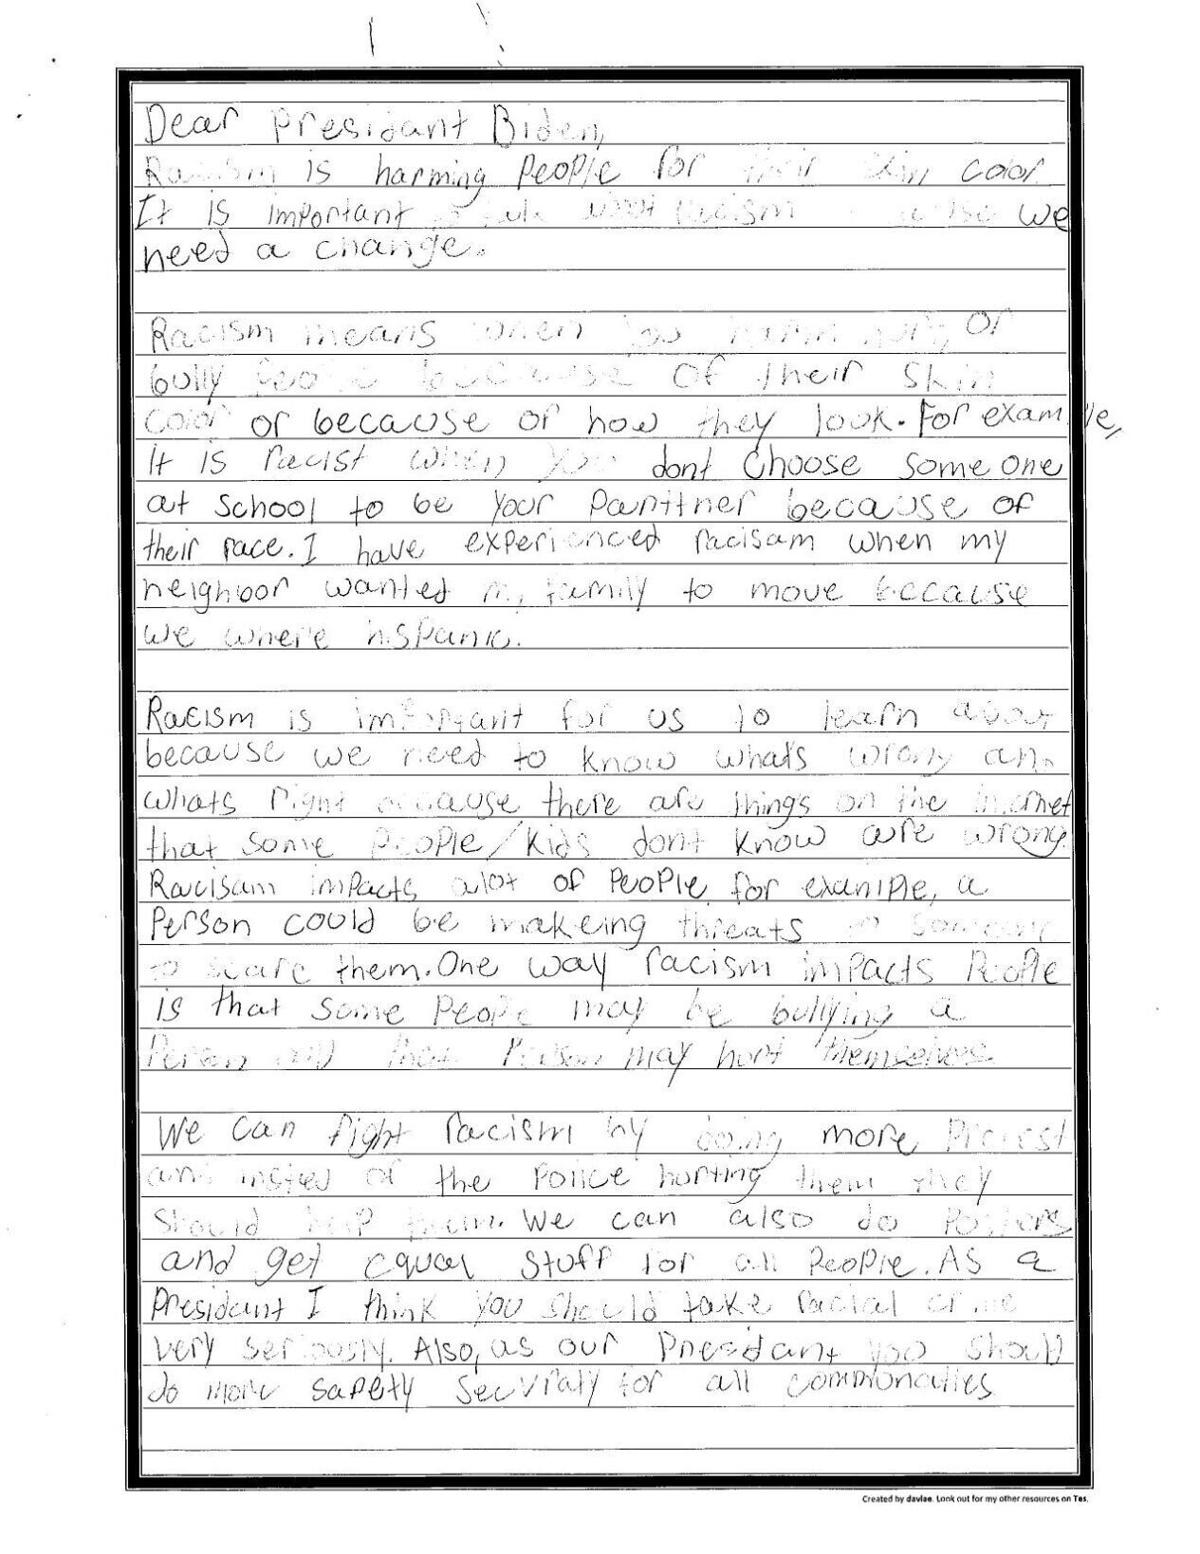 Dear Presidant Biden,
Racism is harming People for their skin color.
It is important about racism we
need a change.
Racism means when you harm or
bully People because of their skin
color or because of how they look. For example,
It is racist when you dont choose some one
at school to be your Parittner because of
their race. I have experienced racisam when my
neighbor wanted my family to move because
we where hispanic.
Racism is important for us to learn about
because we need to know whats wrong and
whats right because there are things on the internet
that some People/kids dont know are wrong.
Racisam impacts alot of People, for example, a
Person could be makeing threats to someone
to scare them. One way racism impacts People
is that some People may be bullying a
Person and that Person may hurt themselves
We can fight racism by doing more Protest
and insted of the Police hurting them they
should help them. We can also do Posters
and get equal stuff for all People. As a
Presidant I think you should take racial crime
very seriously. Also, as our Presidant you should
do more safety for all
Created by davlae. Look out for my other resources on Tes.